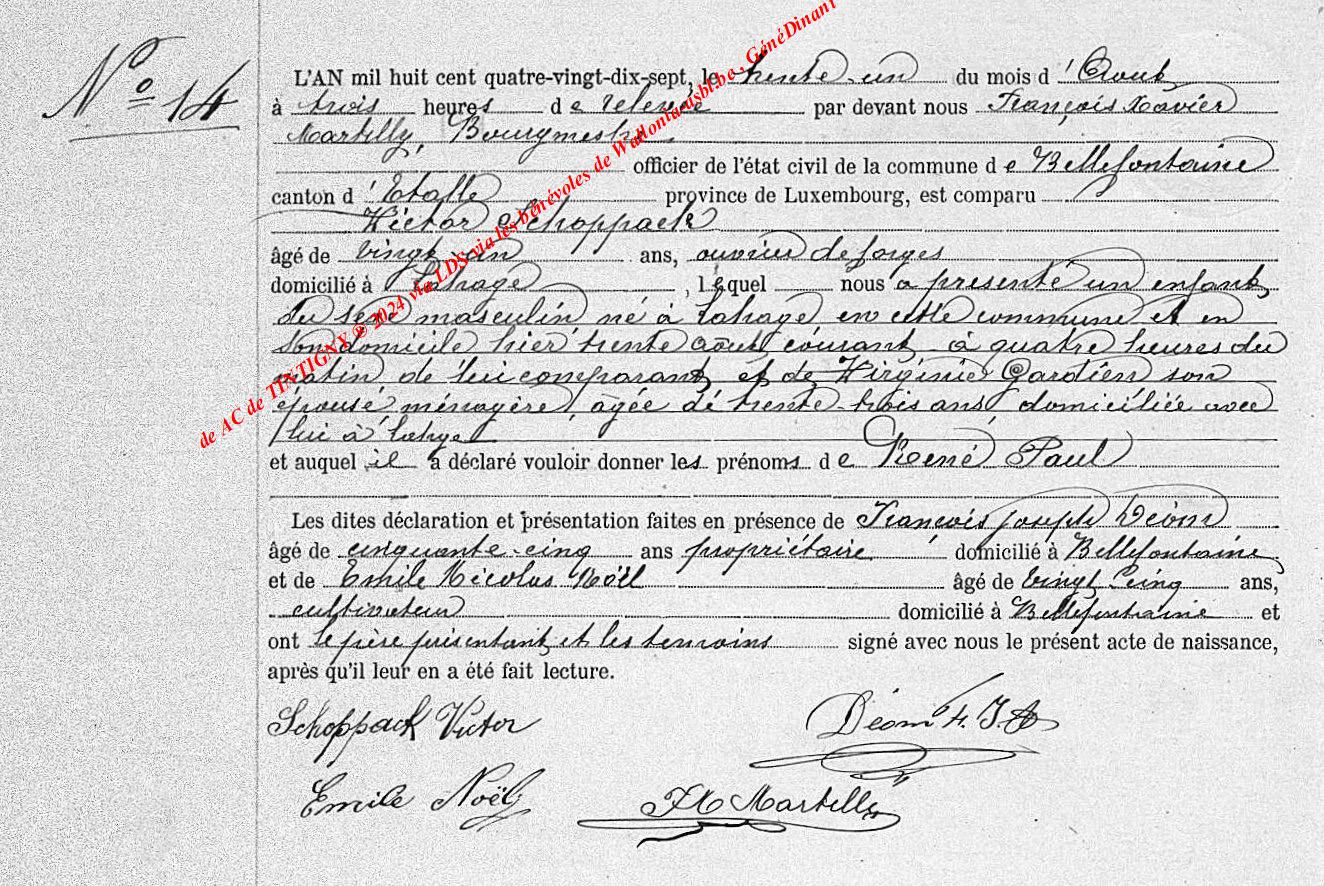 N° 14
L'AN mil huit cent quatre-vingt-dix-sept, le trente-un du mois d'Août
à trois heures de relevée par devant nous François Xavier
Martilly, Bourgmestre
officier de l'état civil de la commune de Bellefontaine
canton d'Etalle province de Luxembourg, est comparu
Victor Schoppack
âgé de vingt un ans, ouvrier de forges
domicilié à Lahage, lequel nous a présenté un enfant
du sexe masculin, né à Lahage en cette commune et en
son domicile hier trente août courant à quatre heures du
matin, de lui comparant et de Virginie Gardien son
épouse, ménagère, âgée de trente-trois ans domiciliée avec
lui à Lahage
et auquel il a déclaré vouloir donner les prénoms de René Paul
Les dites déclaration et présentation faites en présence de François Joseph Déom
âgé de cinquante-cinq ans propriétaire domicilié à Bellefontaine
et de Emile Nicolas Noël âgé de vingt cinq ans,
cultivateur domicilié à Bellefontaine et
ont le père présentant et les temoins signé avec nous le présent acte de naissance,
après qu'il leur en a été fait lecture.
Schoppack Victor
Déom F. J.
Emile Noël
FX Martilly
de AC de TINTIGNY ® 2024 via LDS via les bénévoles de Wallonfamsbl.be - GénéDinant